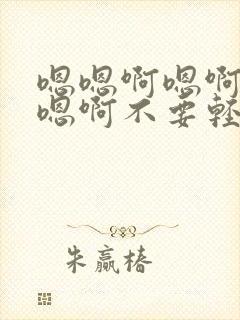 嗯嗯啊嗯啊
嗯啊不要轻
朱赢椿